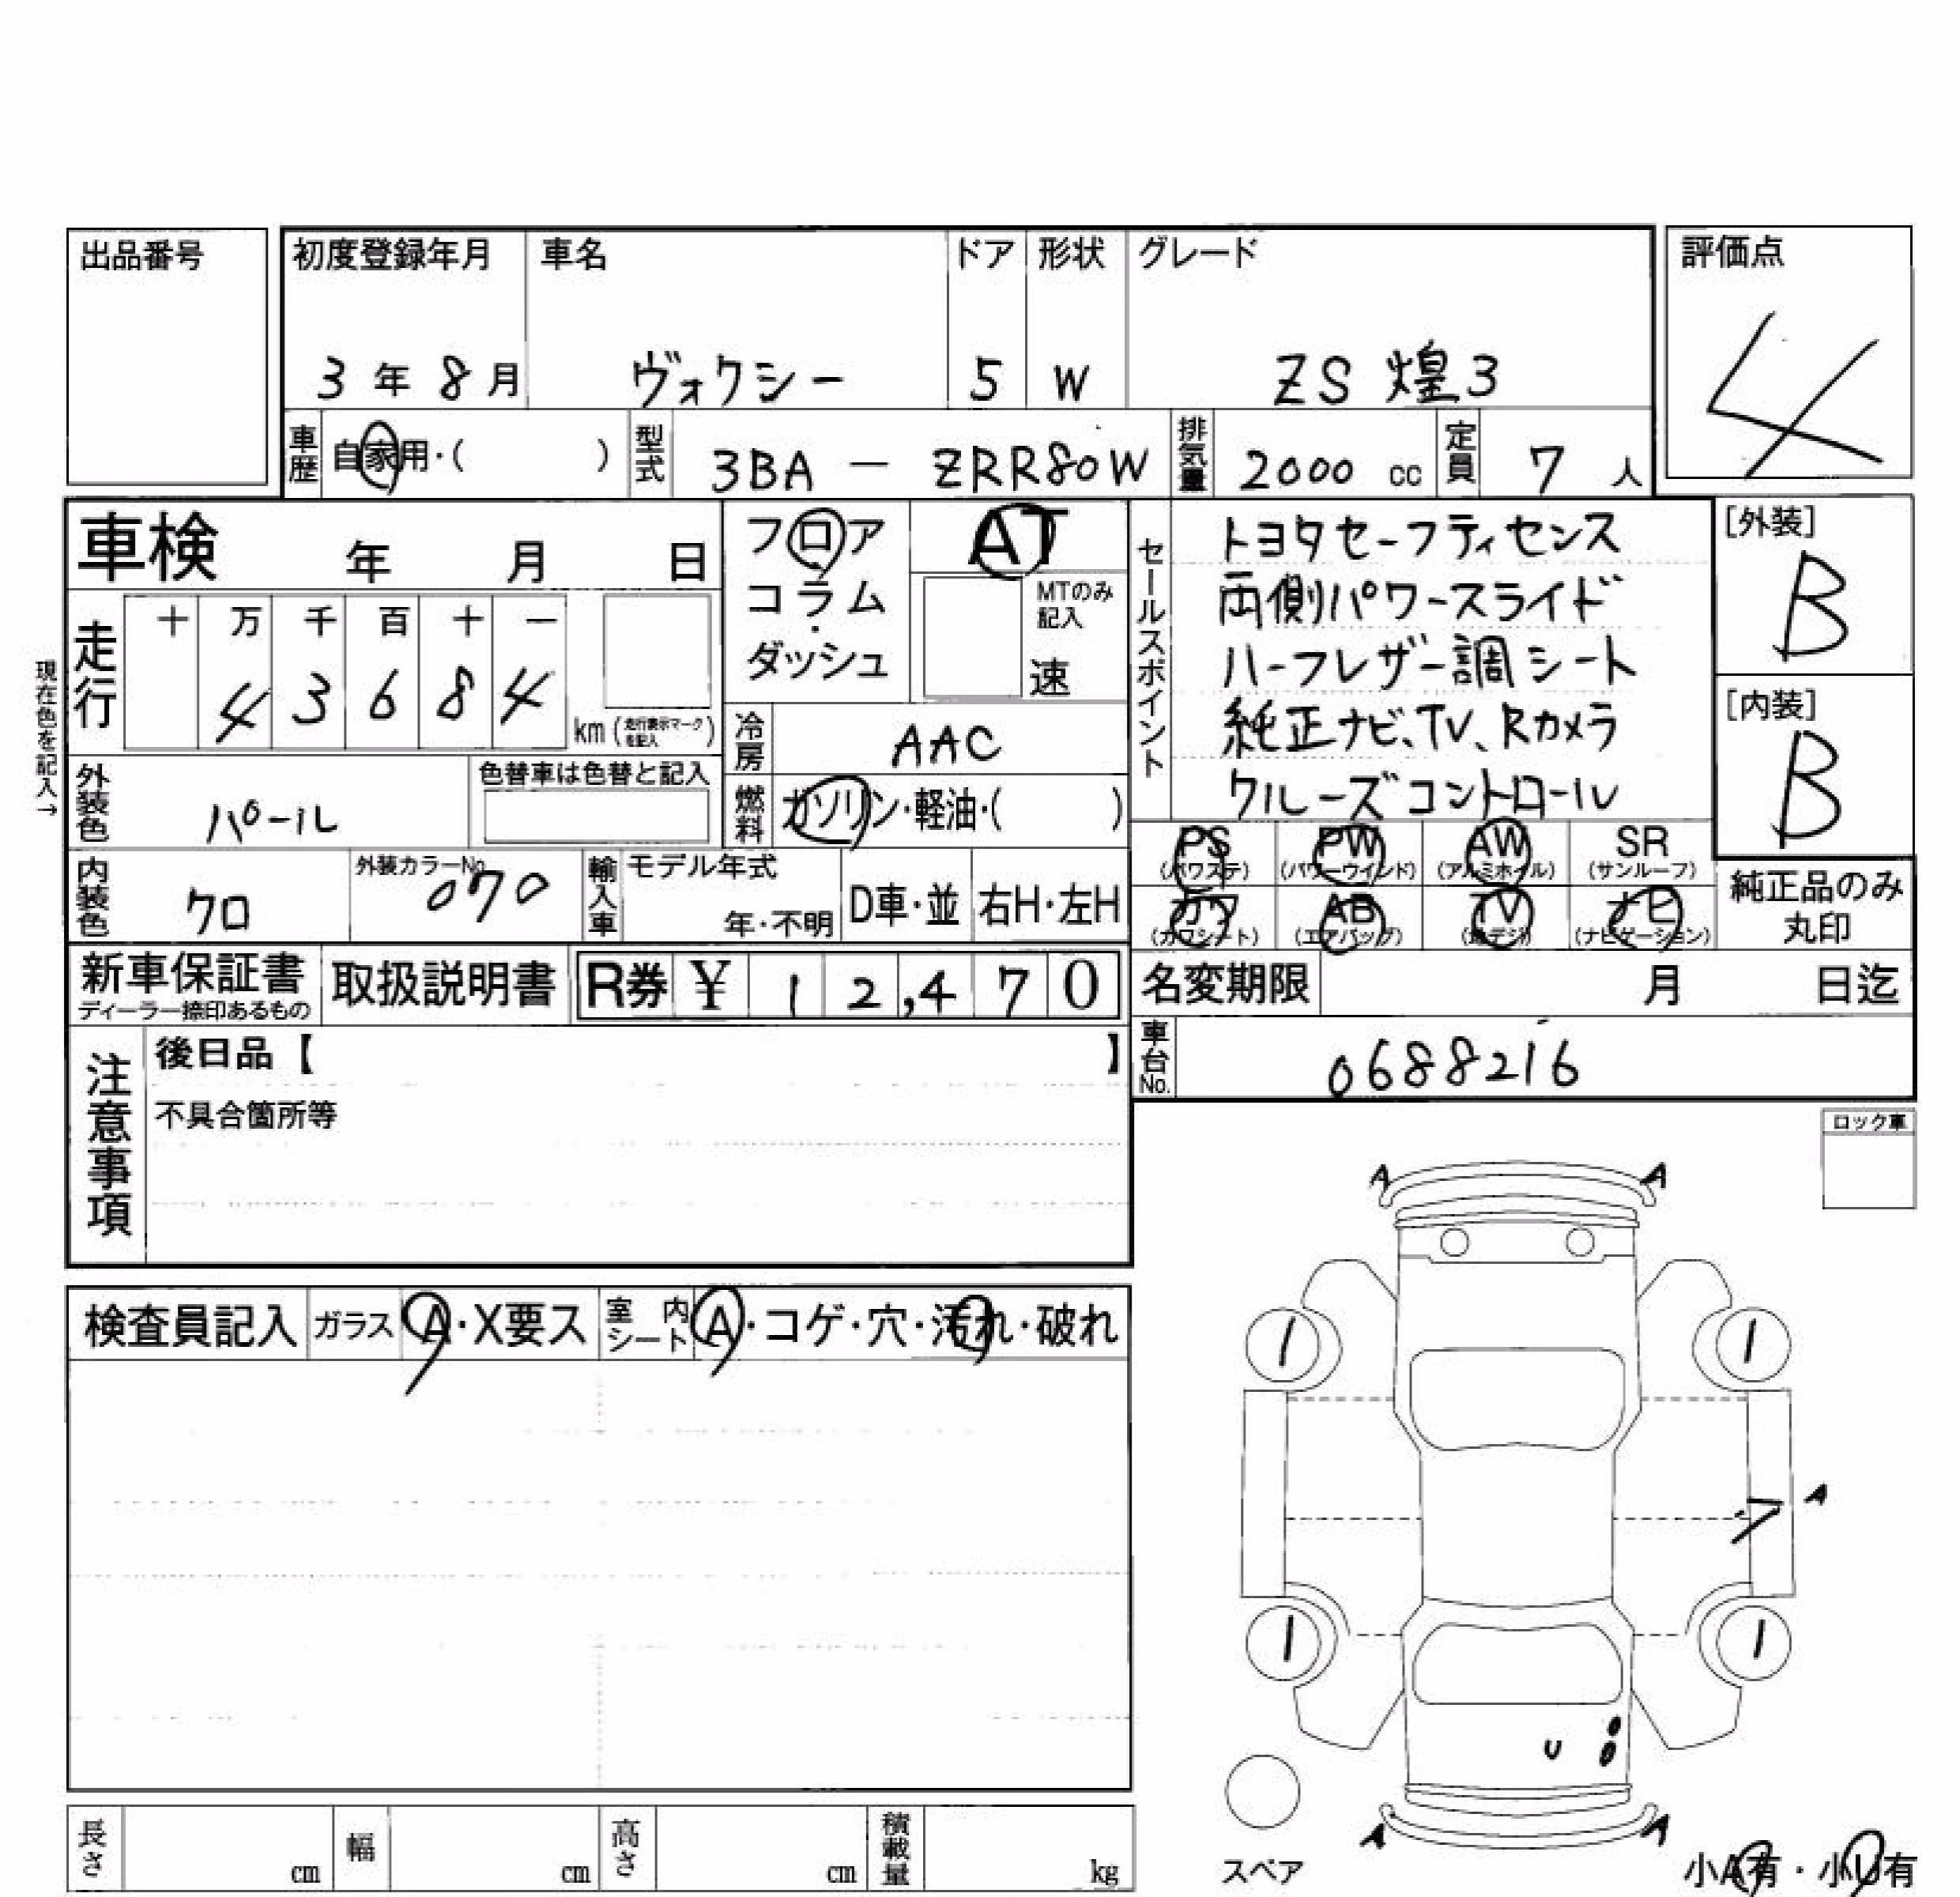 出品番号
初度登録年月 車名 ドア 形状 グレード 評価点
3年8月 ヴォクシー 5 W ZS 煌3 4
車歴 自家用・( ) 型式 3BA - ZRR80W 排気量 2000 cc 定員 7 人
車検 年 月 日
フロア・コラム・ダッシュ
AT
MTのみ記入
速
セールスポイント
トヨタセーフティセンス
両側パワースライド
ハーフレザー調シート
純正ナビ、TV、Rカメラ
クルーズコントロール
[外装]
B
[内装]
B
現在色を記入→
走行 十 万 千 百 十 一
4 3 6 8 4
km (走行表示マークを記入)
冷房 AAC
外装色 パール 色替車は色替と記入
燃料 ガソリン・軽油・( )
PS PW AW SR
(パワステ) (パワーウインド) (アルミホイル) (サンルーフ)
カワ AB TV ナビ
(カワシート) (エアバッグ) (地デジ) (ナビゲーション)
純正品のみ
丸印
内装色 クロ 外装カラーNo. 070 輸入車 モデル年式 年・不明 D車・並 右H・左H
新車保証書
ディーラー捺印あるもの
取扱説明書 R券 ¥ 12,470
名変期限 月 日迄
車台No. 0688216
注意事項
後日品【 】
不具合箇所等
ロック車
A A
検査員記入 ガラス A・X要ス 室内シート A・コゲ・穴・汚れ・破れ
1 1
A
1 1
U
A A
スペア
小A有・小U有
長さ cm 幅 cm 高さ cm 積載量 kg